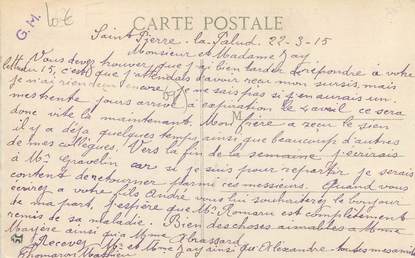 G. M.
CARTE POSTALE
Saint Pierre-la-Palud. 22-3-15
Monsieur et Madame Jay.
Vous devez trouver que j'ai bien tarder de répondre à votre
lettre du 15, c'est que j'attendais d'avoir reçu mon sursis, mais
je n'ai rien eu encore. Je ne sais pas si j'en aurais un
mes trente jours arrive à expiration le 4 avril ce sera
donc vite là maintenant. Mon frère a reçu le sien
il y a déjà quelques temps ainsi que beaucoup d'autres
de mes collègues. Vers la fin de la semaine j'écrirais
à Mr Gravelin car si je suis pour repartir je serais
content de retourner parmi ces messieurs. Quand vous
écrirez a votre fils André vous lui souhaiterez le bonjour
de ma part, j'espère que Mr est complètement
remis de sa maladie. Bien des choses aimables a Mme
ainsi qu'a Mme
Recevez Mr et Mme Jay ainsi que Alexandre toutes mes amitiés
Mathieu